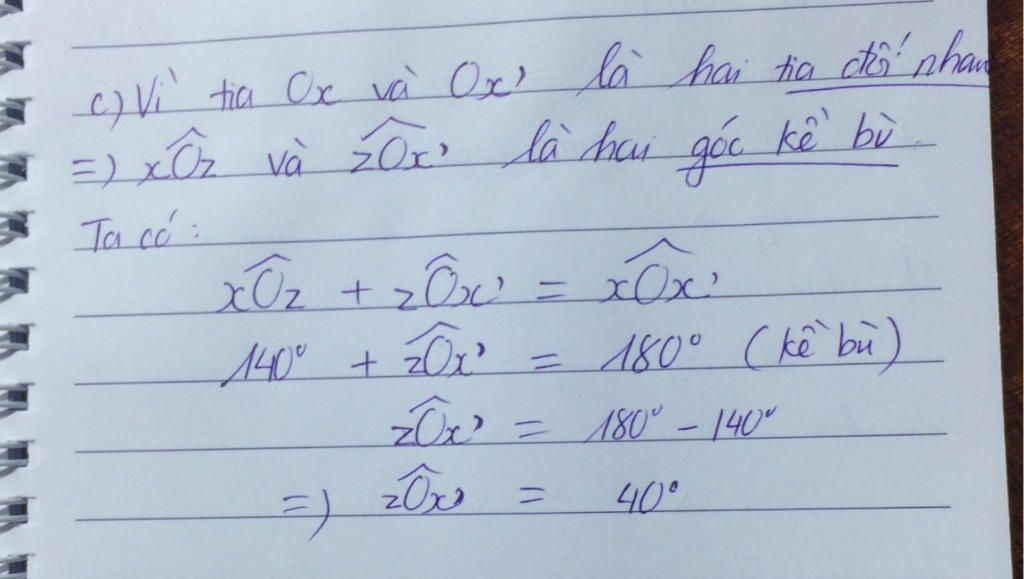 c) Vì tia Ox và Ox' là hai tia đối nhau
=) xÔz và zÔx' là hai góc kề bù
Ta có:
xÔz + zÔx' = xÔx'
140° + zÔx' = 180° (kề bù)
zÔx' = 180° - 140°
=) zÔx' = 40°